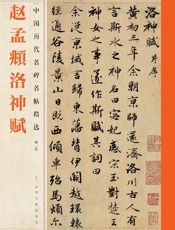 中国历代名碑名帖精选
赵孟頫洛神赋
洛神赋 并序
黄初三年余朝京师还济洛川古人有
言斯水之神名曰宓妃感宋玉對楚王
神女之事遂作斯賦其詞曰
余從京域言歸東藩背伊闕越轘轅
經通谷陵景山日既西傾車殆馬煩尔